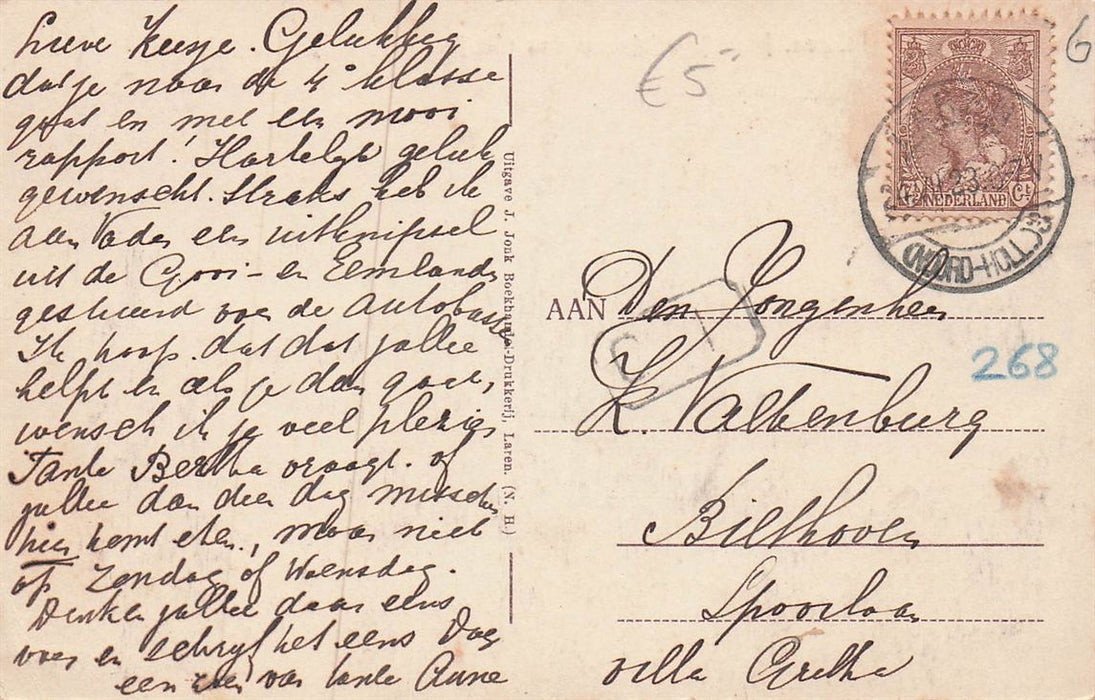 Lieve Keesje. Gelukkig
dat je naar de 4e klasse
gaat en met een mooi
rapport! Hartelijk geluk
gewenscht. Straks heb ik
aan Vader een uitknipsel
uit de Gooi- en Eemlander
gestuurd over de autobussen
Ik hoop dat dat jullie
helpt en als je dan gaat,
wensch ik je veel plezier
Tante Bertha vraagt of
jullie dan dien dag misschien
hier komt eten, maar niet
op Zondag of Woensdag.
Denken jullie daar eens
over en schrijf het eens Dag
een van tante Anne
Uitgave J. Jonk Boekhandel-Drukkerij, Laren. (N. H.)
€ 5
6
NEDERLAND
23
(NOORD-HOLL.)
AAN Den Jongenheer
268
K. Valkenburg
Bilthoven
Spoorlaan
villa Gretha